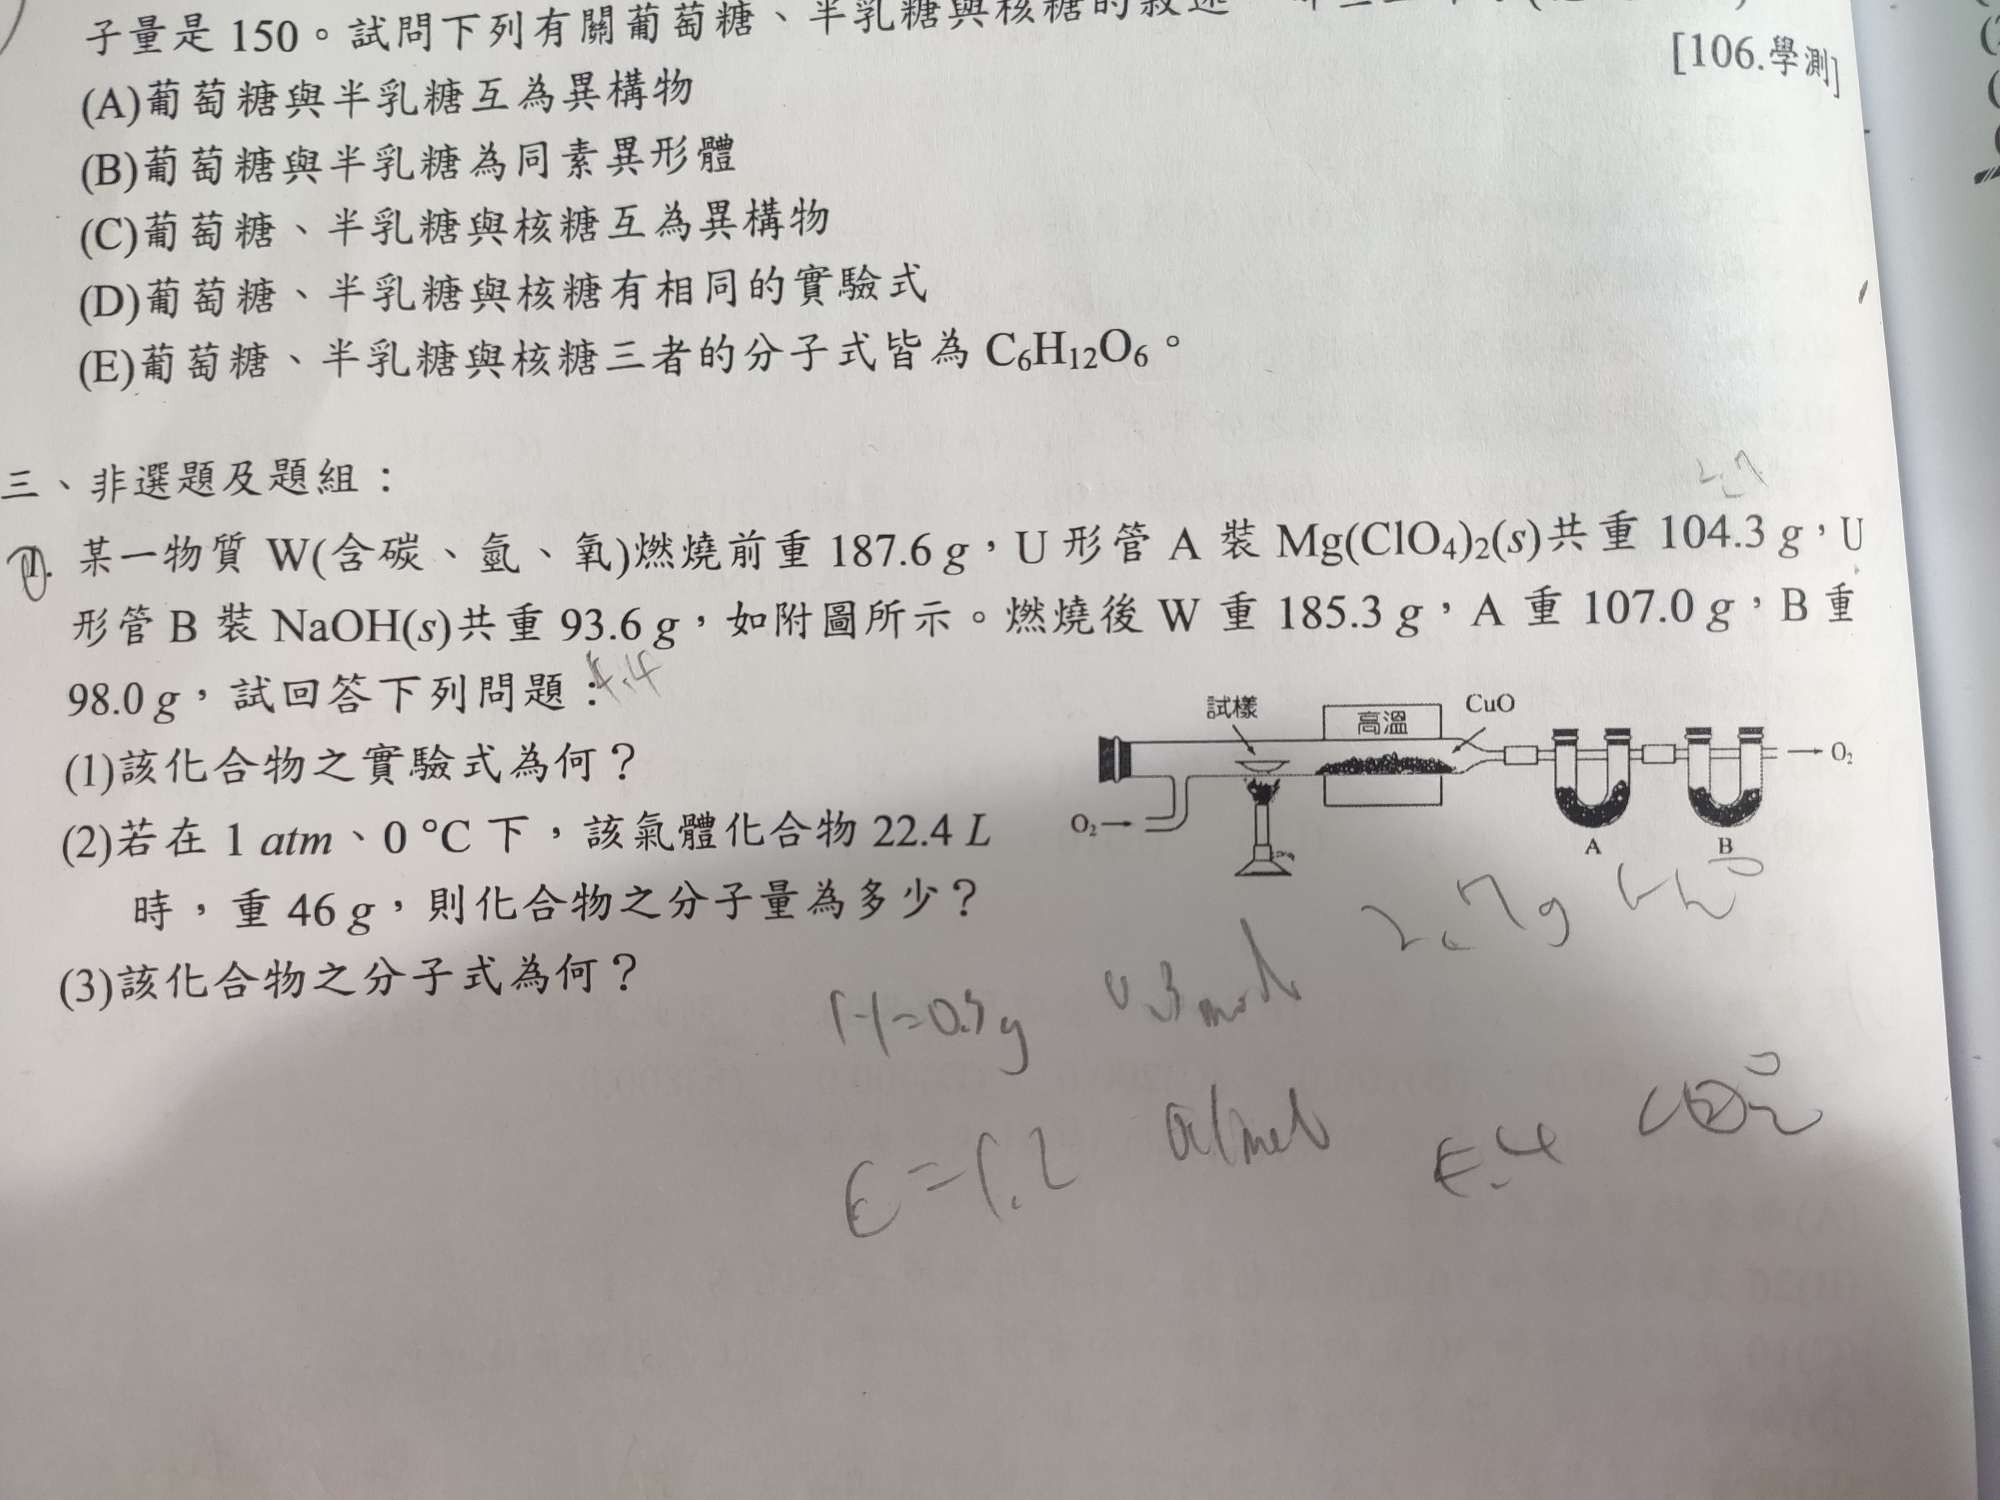 子量是 150。試問下列有關葡萄糖、半乳糖與核糖的敘述
[106.學測]
(A)葡萄糖與半乳糖互為異構物
(B)葡萄糖與半乳糖為同素異形體
(C)葡萄糖、半乳糖與核糖互為異構物
(D)葡萄糖、半乳糖與核糖有相同的實驗式
(E)葡萄糖、半乳糖與核糖三者的分子式皆為 C₆H₁₂O₆。
三、非選題及題組：
2.7
1. 某一物質 W(含碳、氫、氧)燃燒前重 187.6 g，U 形管 A 裝 Mg(ClO₄)₂(s)共重 104.3 g，U
形管 B 裝 NaOH(s)共重 93.6 g，如附圖所示。燃燒後 W 重 185.3 g，A 重 107.0 g，B 重
98.0 g，試回答下列問題：
4.4
(1)該化合物之實驗式為何？
(2)若在 1 atm、0 °C 下，該氣體化合物 22.4 L
時，重 46 g，則化合物之分子量為多少？
(3)該化合物之分子式為何？
試樣
高溫
CuO
O₂
O₂
A
B
2.7g
H=0.3g
0.3mol